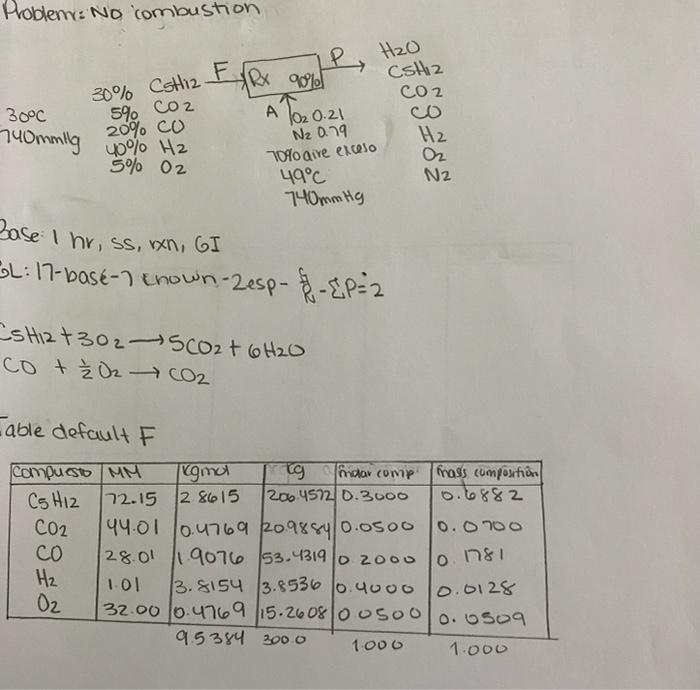 Problem: No combustion
30°C
740mmHg
30% C5H12
5% CO2
20% CO
40% H2
5% O2
F
Rx 90%
P
A
O2 0.21
N2 0.79
70% aire exceso
49°C
740mmHg
H2O
C5H12
CO2
CO
H2
O2
N2
Base: 1 hr, ss, rxn, GI
GL: 17-base-7 known-2esp- -ΣP=2
C5H12 + 3O2 → 5CO2 + 6H2O
CO + 1/2 O2 → CO2
Table default F
Compuesto MM kgmol kg molar comp mass composition
C5H12 72.15 2.8615 206.4572 0.3000 0.6882
CO2 44.01 0.4769 20.9884 0.0500 0.0700
CO 28.01 1.9076 53.4319 0.2000 0.1781
H2 1.01 3.8154 3.8536 0.4000 0.0128
O2 32.00 0.4769 15.2608 0.0500 0.0509
9.5384 300.0 1.000 1.000